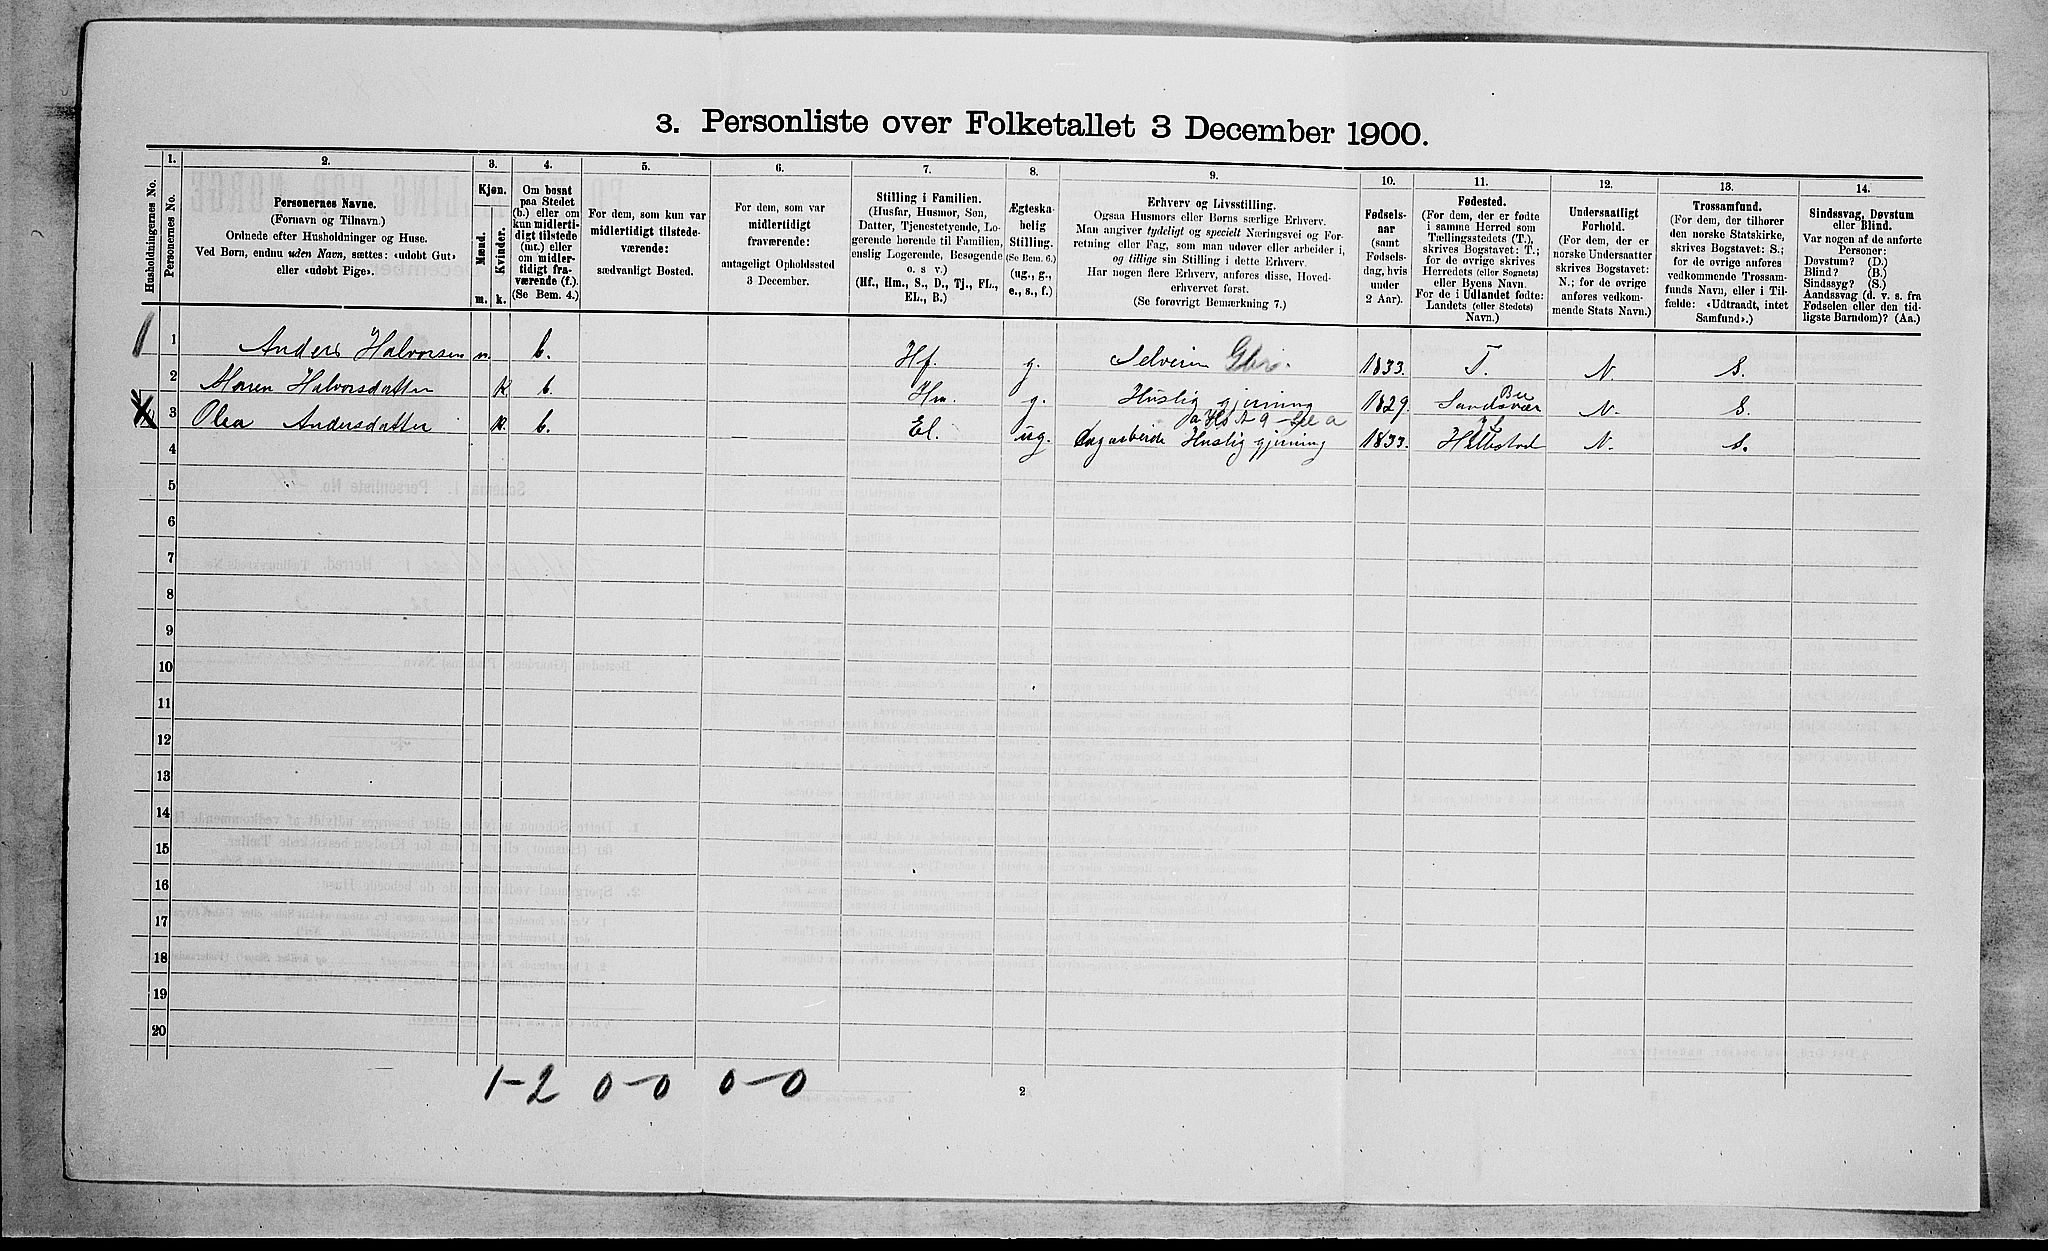 3. Personliste over Folketallet 3 December 1900.
1. 2. 3. 4. 5. 6. 7. 8. 9. 10. 11. 12. 13. 14.
Husholdningernes No.
Personernes No.
Personernes Navne.
(Fornavn og Tilnavn.)
Ordnede efter Husholdninger og Huse.
Ved Børn, endnu uden Navn, sættes: «udøbt Gut»
eller «udøbt Pige».
Kjøn.
Mænd.
Kvinder.
m. k.
Om bosat
paa Stedet
(b.) eller om
kun midlerti-
digt tilstede
(mt.) eller
om midler-
tidigt fra-
værende (f.).
(Se Bem. 4.)
For dem, som kun var
midlertidigt tilstede-
værende:
sædvanligt Bosted.
For dem, som var
midlertidigt
fraværende:
antageligt Opholdssted
3 December.
Stilling i Familien.
(Husfar, Husmor, Søn,
Datter, Tjenestetyende, Lo-
gerende hørende til Familien,
enslig Logerende, Besøgende
o. s. v.)
(Hf., Hm., S., D., Tj., FL.,
EL., B.)
Ægteska-
belig
Stilling.
(Se Bem. 6.)
(ug., g.,
e., s., f.)
Erhverv og Livsstilling.
Ogsaa Husmors eller Børns særlige Erhverv.
Man angiver tydeligt og specielt Næringsvei og For-
retning eller Fag, som man udøver eller arbeider i,
og tillige sin Stilling i dette Erhverv.
Har nogen flere Erhverv, anføres disse, Hoved-
erhvervet først.
(Se forøvrigt Bemærkning 7.)
Fødsels-
aar
(samt
Fødsels-
dag, hvis
under
2 Aar).
Fødested.
(For dem, der er fødte
i samme Herred som
Tællingsstedets (T.),
skrives Bogstavet: T.;
for de øvrige skrives
Herredets (eller Sognets)
eller Byens Navn.
For de i Udlandet fødte:
Landets (eller Stedets)
Navn.)
Undersaatligt
Forhold.
(For dem, der er
norske Undersaatter
skrives Bogstavet:
N.; for de øvrige
anføres vedkom-
mende Stats Navn.)
Trossamfund.
(For dem, der tilhører
den norske Statskirke,
skrives Bogstavet: S.;
for de øvrige anføres
vedkommende Trossam-
funds Navn, eller i Til-
fælde: «Udtraadt, intet
Samfund».)
Sindssvag, Døvstum
eller Blind.
Var nogen af de anførte
Personer:
Døvstum? (D.)
Blind? (B.)
Sindssyg? (S.)
Aandssvag (d. v. s. fra
Fødselen eller den tid-
ligste Barndom)? (Aa.)
1 1 Anders Halvorsen m. b. Hf. g. Selveier Gbr. 1833. T. N. S.
2 Maren Halvorsdatter k. b. Hm. g. Huslig gjerning 1829. Sandsvær Bu N. S.
3 Olea Andersdatter k. b. El. ug. Dagarbeide Huslig gjerning 1833. Hillestad N. S.
4
5
6
7
8
9
10
11
12
13
14
15
16
17
18
19
20
1-2 0-0 0-0
2